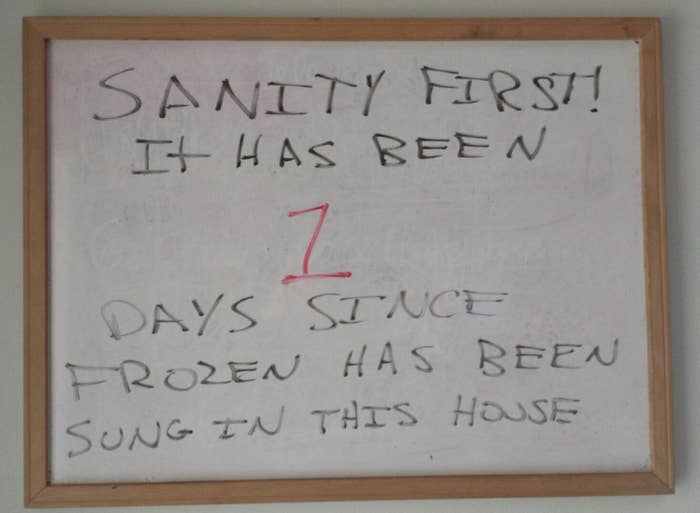 SANITY FIRST!
It HAS BEEN
1
DAYS SINCE
FROZEN HAS BEEN
SUNG IN THIS HOUSE